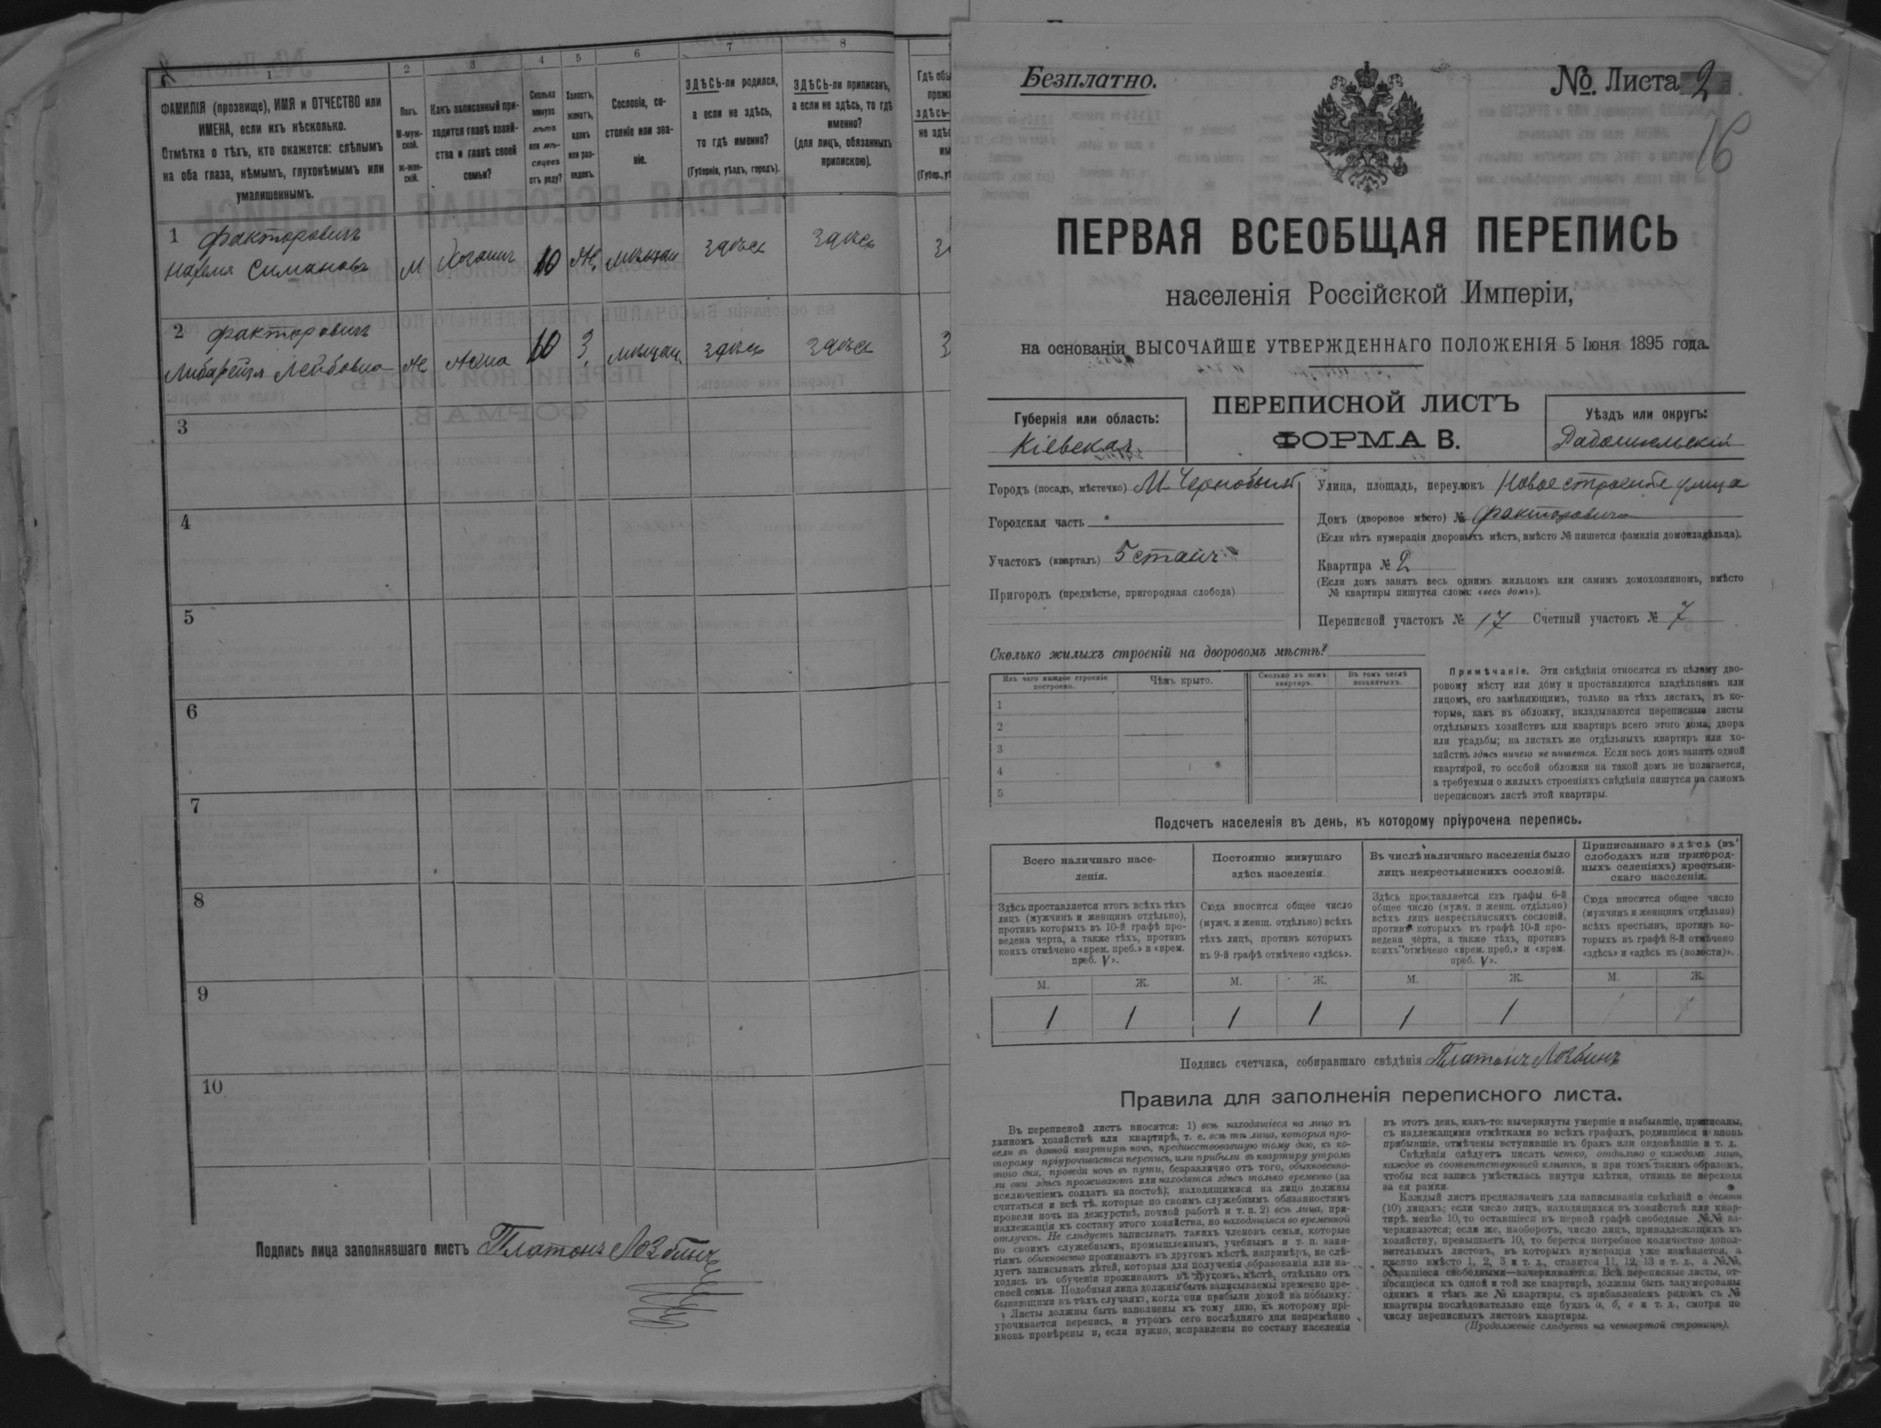 1
2
3
4
5
6
7
8
ФАМИЛІЯ (прозвище), ИМЯ и ОТЧЕСТВО или
ИМЕНА, если ихъ нѣсколько.
Отмѣтка о тѣхъ, кто окажется: слѣпымъ
на оба глаза, нѣмымъ, глухонѣмымъ или
умалишеннымъ.
Полъ.
М-муж-
ской.
Ж-жен-
скій.
Какъ записанный при-
ходится главѣ хозяй-
ства и главѣ своей
семьи?
Сколько
минуло
лѣтъ
или мѣ-
сяцевъ
отъ роду?
Холостъ,
женатъ,
вдовъ
или раз-
веденъ.
Сословіе, со-
стояніе или зва-
ніе.
ЗДѢСЬ-ли родился,
а если не здѣсь,
то гдѣ именно?
(Губернія, уѣздъ, городъ).
ЗДѢСЬ-ли приписанъ,
а если не здѣсь, то гдѣ
именно?
(для лицъ, обязанныхъ
припискою).
1 Факторовичъ
Симановъ М 10 Ж. здѣсь здѣсь
2 Факторовичъ
Лейбовна Ж 10 З. здѣсь здѣсь
3
4
5
6
7
8
9
10
Подпись лица заполнявшаго листъ Платонъ
Безплатно.
№ Листа 2
16
ПЕРВАЯ ВСЕОБЩАЯ ПЕРЕПИСЬ
населенія Россійской Имперіи,
на основаніи ВЫСОЧАЙШЕ УТВЕРЖДЕННАГО ПОЛОЖЕНІЯ 5 Іюня 1895 года.
Губернія или область:
Кіевская
ПЕРЕПИСНОЙ ЛИСТЪ
ФОРМА В.
Уѣздъ или округъ:
Радомысльскій
Городъ (посадъ, мѣстечко) М. Чернобыль
Городская часть
Участокъ (кварталъ) 5 станъ
Пригородъ (предмѣстье, пригородная слобода)
Улица, площадь, переулокъ Новое строеніе улица
Домъ (дворовое мѣсто) № Факторовича
(Если нѣтъ нумераціи дворовыхъ мѣстъ, вмѣсто № пишется фамилія домовладѣльца).
Квартира № 2
(Если домъ занятъ весь однимъ жильцомъ или самимъ домохозяиномъ, вмѣсто
№ квартиры пишутся слова: «весь домъ»).
Переписной участокъ № 17 Счетный участокъ № 7
Сколько жилыхъ строеній на дворовомъ мѣстѣ?
Изъ чего каждое строеніе
построено.
Чѣмъ крыто.
Сколько въ немъ
квартиръ.
Въ томъ числѣ
незанятыхъ.
1
2
3
4
5
Примѣчаніе. Эти свѣдѣнія относятся къ цѣлому дво-
ровому мѣсту или дому и проставляются владѣльцемъ или
лицомъ, его замѣняющимъ, только на тѣхъ листахъ, въ ко-
торые, какъ въ обложку, вкладываются переписные листы
отдѣльныхъ хозяйствъ или квартиръ всего этого дома, двора
или усадьбы; на листахъ же отдѣльныхъ квартиръ или хо-
зяйствъ здѣсь ничего не пишется. Если весь домъ занятъ одной
квартирой, то особой обложки на такой домъ не полагается,
а требуемыя о жилыхъ строеніяхъ свѣдѣнія пишутся на самомъ
переписномъ листѣ этой квартиры.
Подсчетъ населенія въ день, къ которому пріурочена перепись.
Всего наличнаго насе-
ленія.
Постоянно живущаго
здѣсь населенія.
Въ числѣ наличнаго населенія было
лицъ некрестьянскихъ сословій.
Приписаннаго здѣсь (въ
слободахъ или пригород-
ныхъ селеніяхъ) крестьян-
скаго населенія.
Здѣсь проставляется итогъ всѣхъ тѣхъ
лицъ (мужчинъ и женщинъ отдѣльно),
противъ которыхъ въ 10-й графѣ про-
ведена черта, а также тѣхъ, противъ
коихъ отмѣчено «врем. преб.» и «врем.
преб. V».
Сюда вносится общее число
(мужч. и женщ. отдѣльно) всѣхъ
тѣхъ лицъ, противъ которыхъ
въ 9-й графѣ отмѣчено «здѣсь».
Здѣсь проставляется изъ графы 6-й
общее число (мужч. и женщ. отдѣльно)
всѣхъ лицъ некрестьянскихъ сословій,
противъ которыхъ въ графѣ 10-й про-
ведена черта, а также тѣхъ, противъ
коихъ отмѣчено «врем. преб.» и «врем.
преб. V».
Сюда вносится общее число
(мужчинъ и женщинъ отдѣльно)
всѣхъ крестьянъ, противъ ко-
торыхъ въ графѣ 8-й отмѣчено
«здѣсь» и «здѣсь въ (волости)».
М. Ж. М. Ж. М. Ж. М. Ж.
1 1 1 1 1 1
Подпись счетчика, собиравшаго свѣдѣнія Платонъ
Правила для заполненія переписного листа.
Въ переписной листъ вносятся: 1) всѣ находящіеся на лицо въ
данномъ хозяйствѣ или квартирѣ, т. е. всѣ тѣ лица, которыя про-
вели въ данной квартирѣ ночь, предшествовавшую тому дню, къ ко-
торому пріурочивается перепись, или прибыли въ квартиру утромъ
этого дня, проведя ночь въ пути, безразлично отъ того, обыкновенно-
ли они здѣсь проживаютъ или находятся здѣсь только временно (за
исключеніемъ солдатъ на постоѣ); находящимися на лицо должны
считаться и всѣ тѣ, которые по своимъ служебнымъ обязанностямъ
провели ночь на дежурствѣ, ночной работѣ и т. п. 2) всѣ лица, при-
надлежащія къ составу этого хозяйства, но находящіяся во временной
отлучкѣ. Не слѣдуетъ записывать такихъ членовъ семьи, которые
по своимъ служебнымъ, промышленнымъ, учебнымъ и т. п. заня-
тіямъ обыкновенно проживаютъ въ другомъ мѣстѣ, напримѣръ, не слѣ-
дуетъ записывать дѣтей, которыя для полученія образованія или на-
ходясь въ обученіи проживаютъ въ другомъ мѣстѣ, отдѣльно отъ
своей семьи. Подобныя лица должны быть записываемы временно пре-
бывающими въ тѣхъ случаяхъ, когда они прибыли домой на побывку.
Листы должны быть заполнены къ тому дню, къ которому прі-
урочивается перепись, и утромъ сего послѣдняго дня непремѣнно
вновь провѣрены и, если нужно, исправлены по составу населенія
въ этотъ день, какъ-то: вычеркнуты умершіе и выбывшіе, приписаны,
съ надлежащими отмѣтками во всѣхъ графахъ, родившіеся и вновь
прибывшіе, отмѣчены вступившіе въ бракъ или овдовѣвшіе и т. д.
Свѣдѣнія слѣдуетъ писать четко, отдѣльно о каждомъ лицѣ,
каждое въ соотвѣтствующей клѣткѣ, и при томъ такимъ образомъ,
чтобы вся запись умѣстилась внутри клѣтки, отнюдь не переходя
за ея рамки.
Каждый листъ предназначенъ для записыванія свѣдѣній о десяти
(10) лицахъ; если число лицъ, находящихся въ хозяйствѣ или квар-
тирѣ, менѣе 10, то оставшіеся въ первой графѣ свободные №№ за-
черкиваются; если же, наоборотъ, число лицъ, принадлежащихъ къ
хозяйству, превышаетъ 10, то берется потребное количество допол-
нительныхъ листовъ, въ которыхъ нумерація уже измѣняется, а
именно вмѣсто 1, 2, 3 и т. д., ставится 11, 12, 13 и т. д., а №№,
оставшіеся свободными—зачеркиваются. Всѣ переписные листы, от-
носящіеся къ одной и той же квартирѣ, должны быть занумерованы
однимъ и тѣмъ же № квартиры, съ прибавленіемъ рядомъ съ №
квартиры послѣдовательно еще буквъ а, б, в и т. д., смотря по
числу переписныхъ листовъ квартиры.
(Продолженіе слѣдуетъ на четвертой страницѣ).